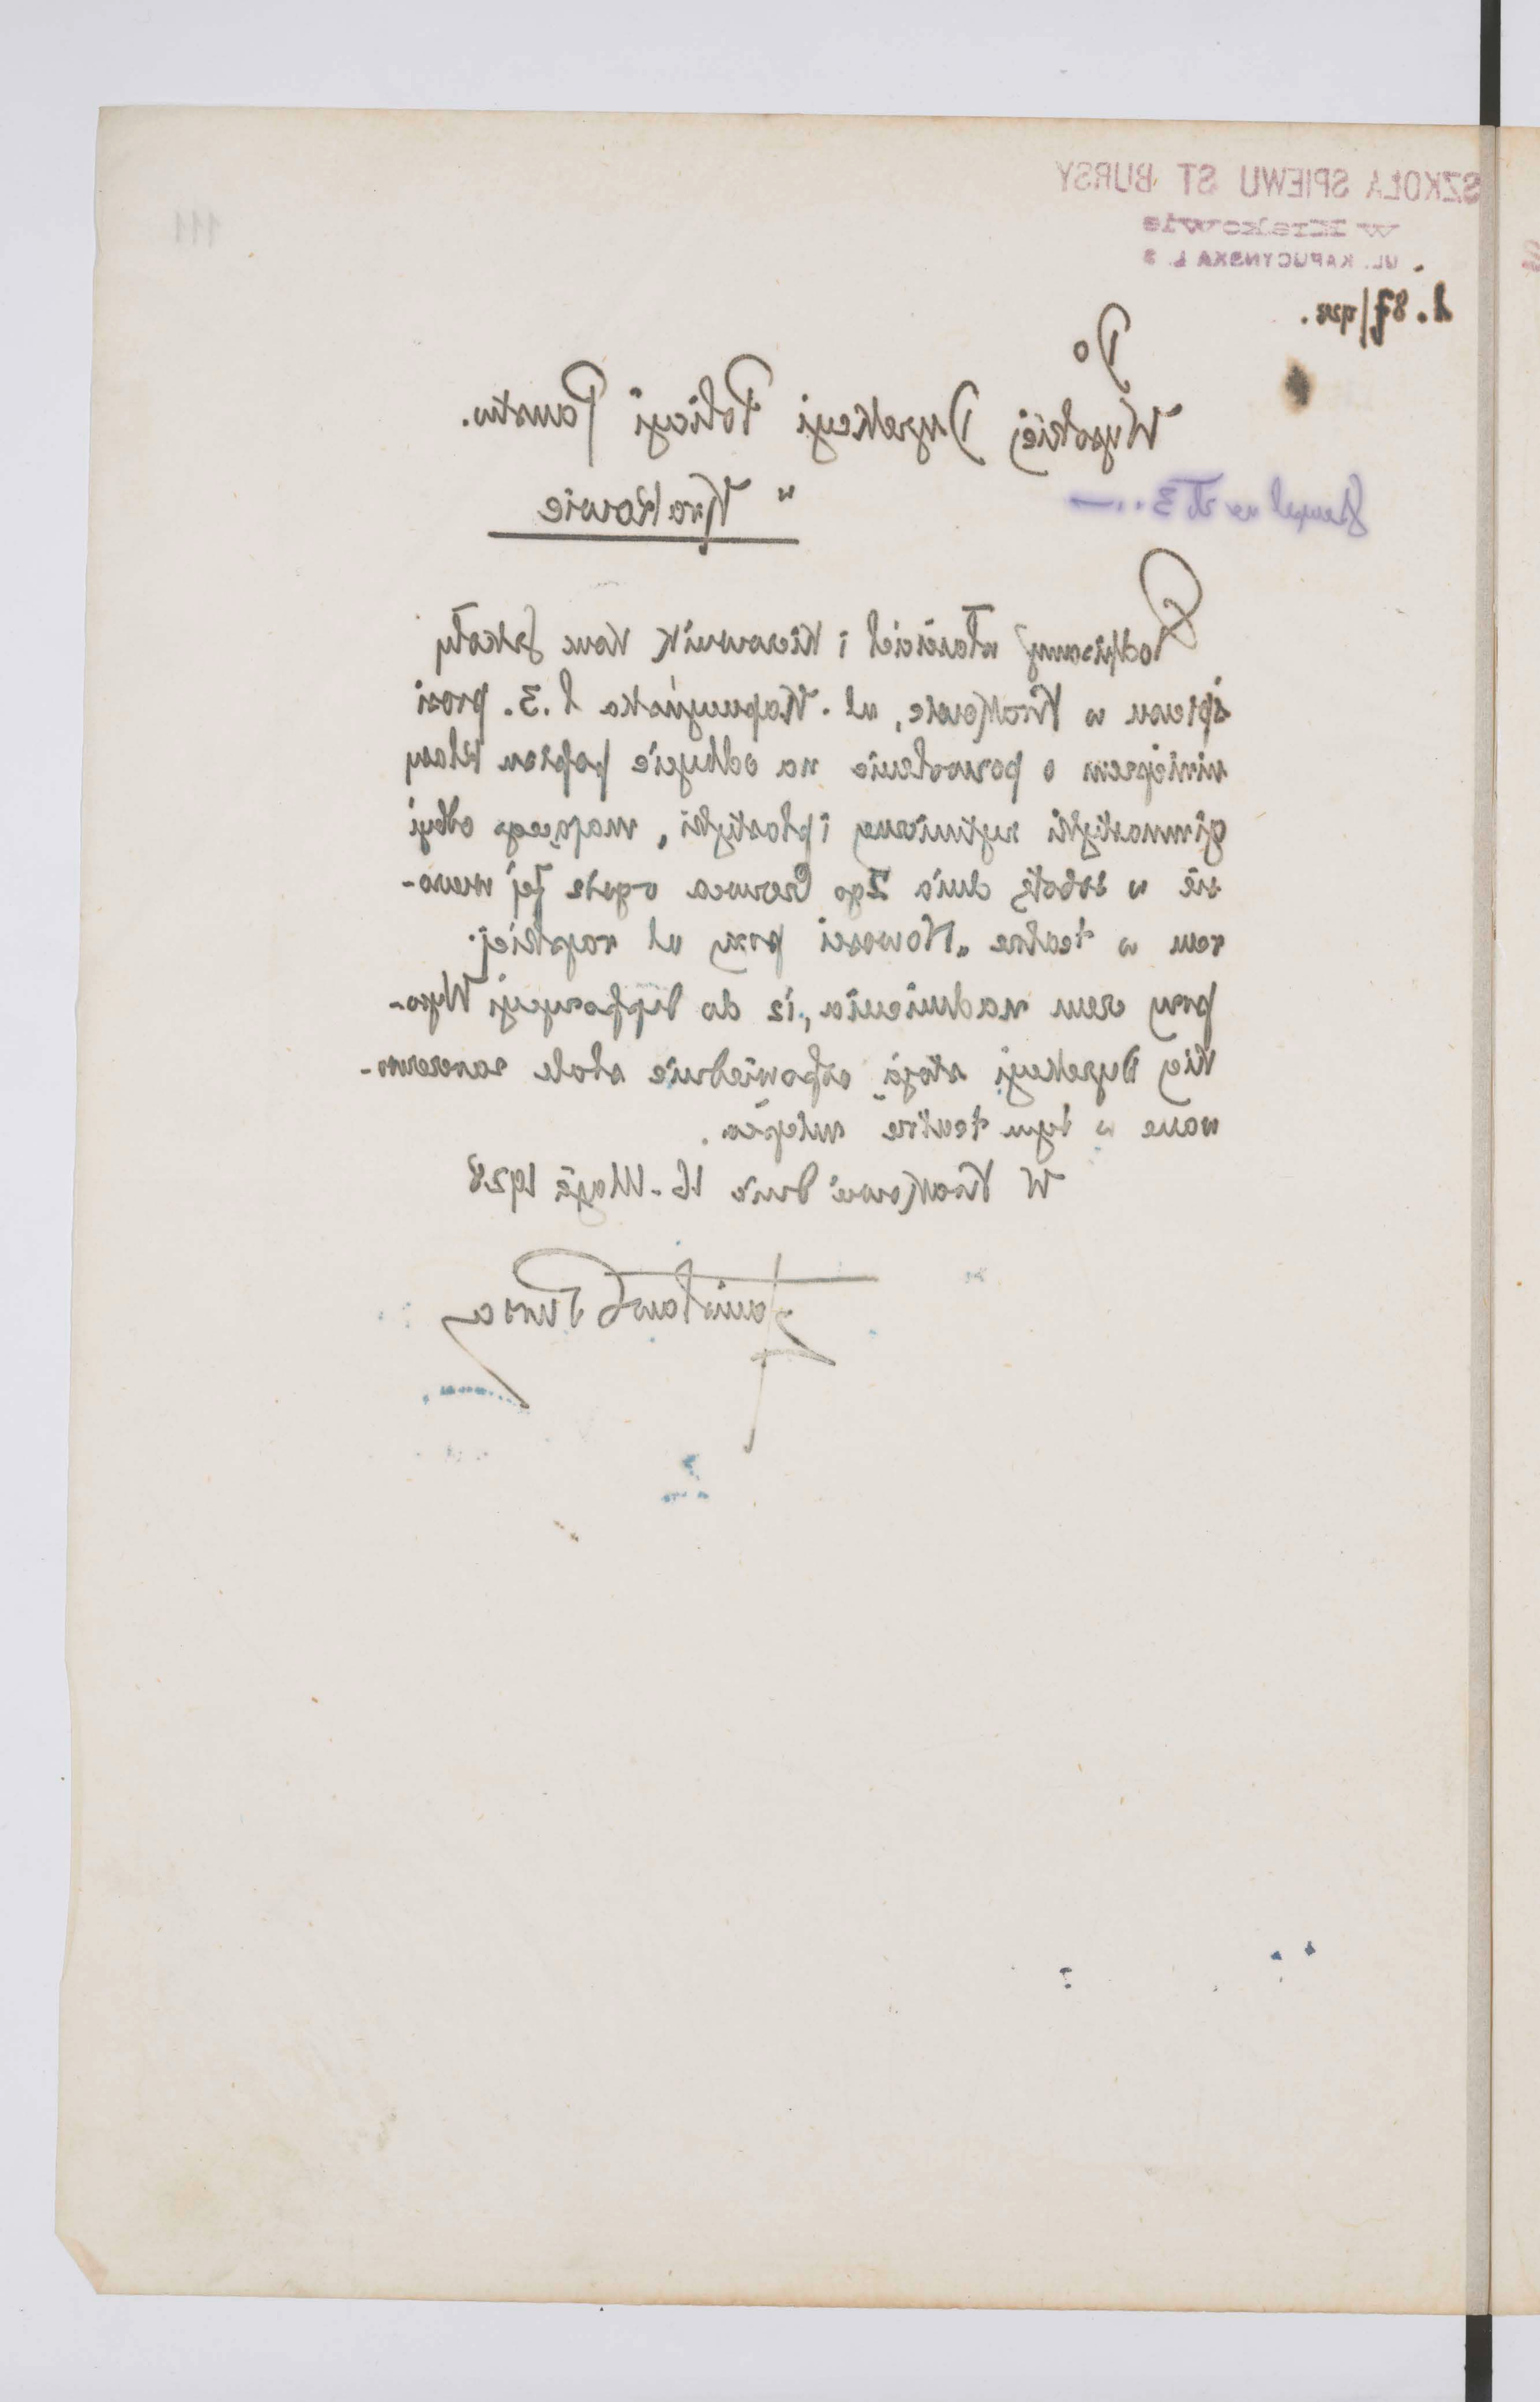 111
SZKOŁA SPIEWU ST BURSY
w Krakowie
UL. KAPUCYNSKA L. 3
L. 87/928.
Do
Wysokiej Dyrekcyi Policyi Państw.
w Krakowie
Stempel na Zł 3...—
Podpisany właściciel i kierownik konc szkoły
śpiewu w Krakowie, ul. Kapucyńska l. 3. prosi
niniejszem o pozwolenie na odbycie popisu klasy
gimnastyki rytmicznej i plastyki, mającego odbyć
się w sobotę dnia 2go Czerwca o godz 7ej wieczo-
rem w teatrze „Nowości przy ul rajskiej.
przy czem nadmienia, iż do dyspozycyi Wyso-
kiej Dyrekcyi stoją odpowiednie stale zarezerwo-
wane w tym teatrze miejsca.
W Krakowie dnia 16. Maja 1928
Stanisław Bursa